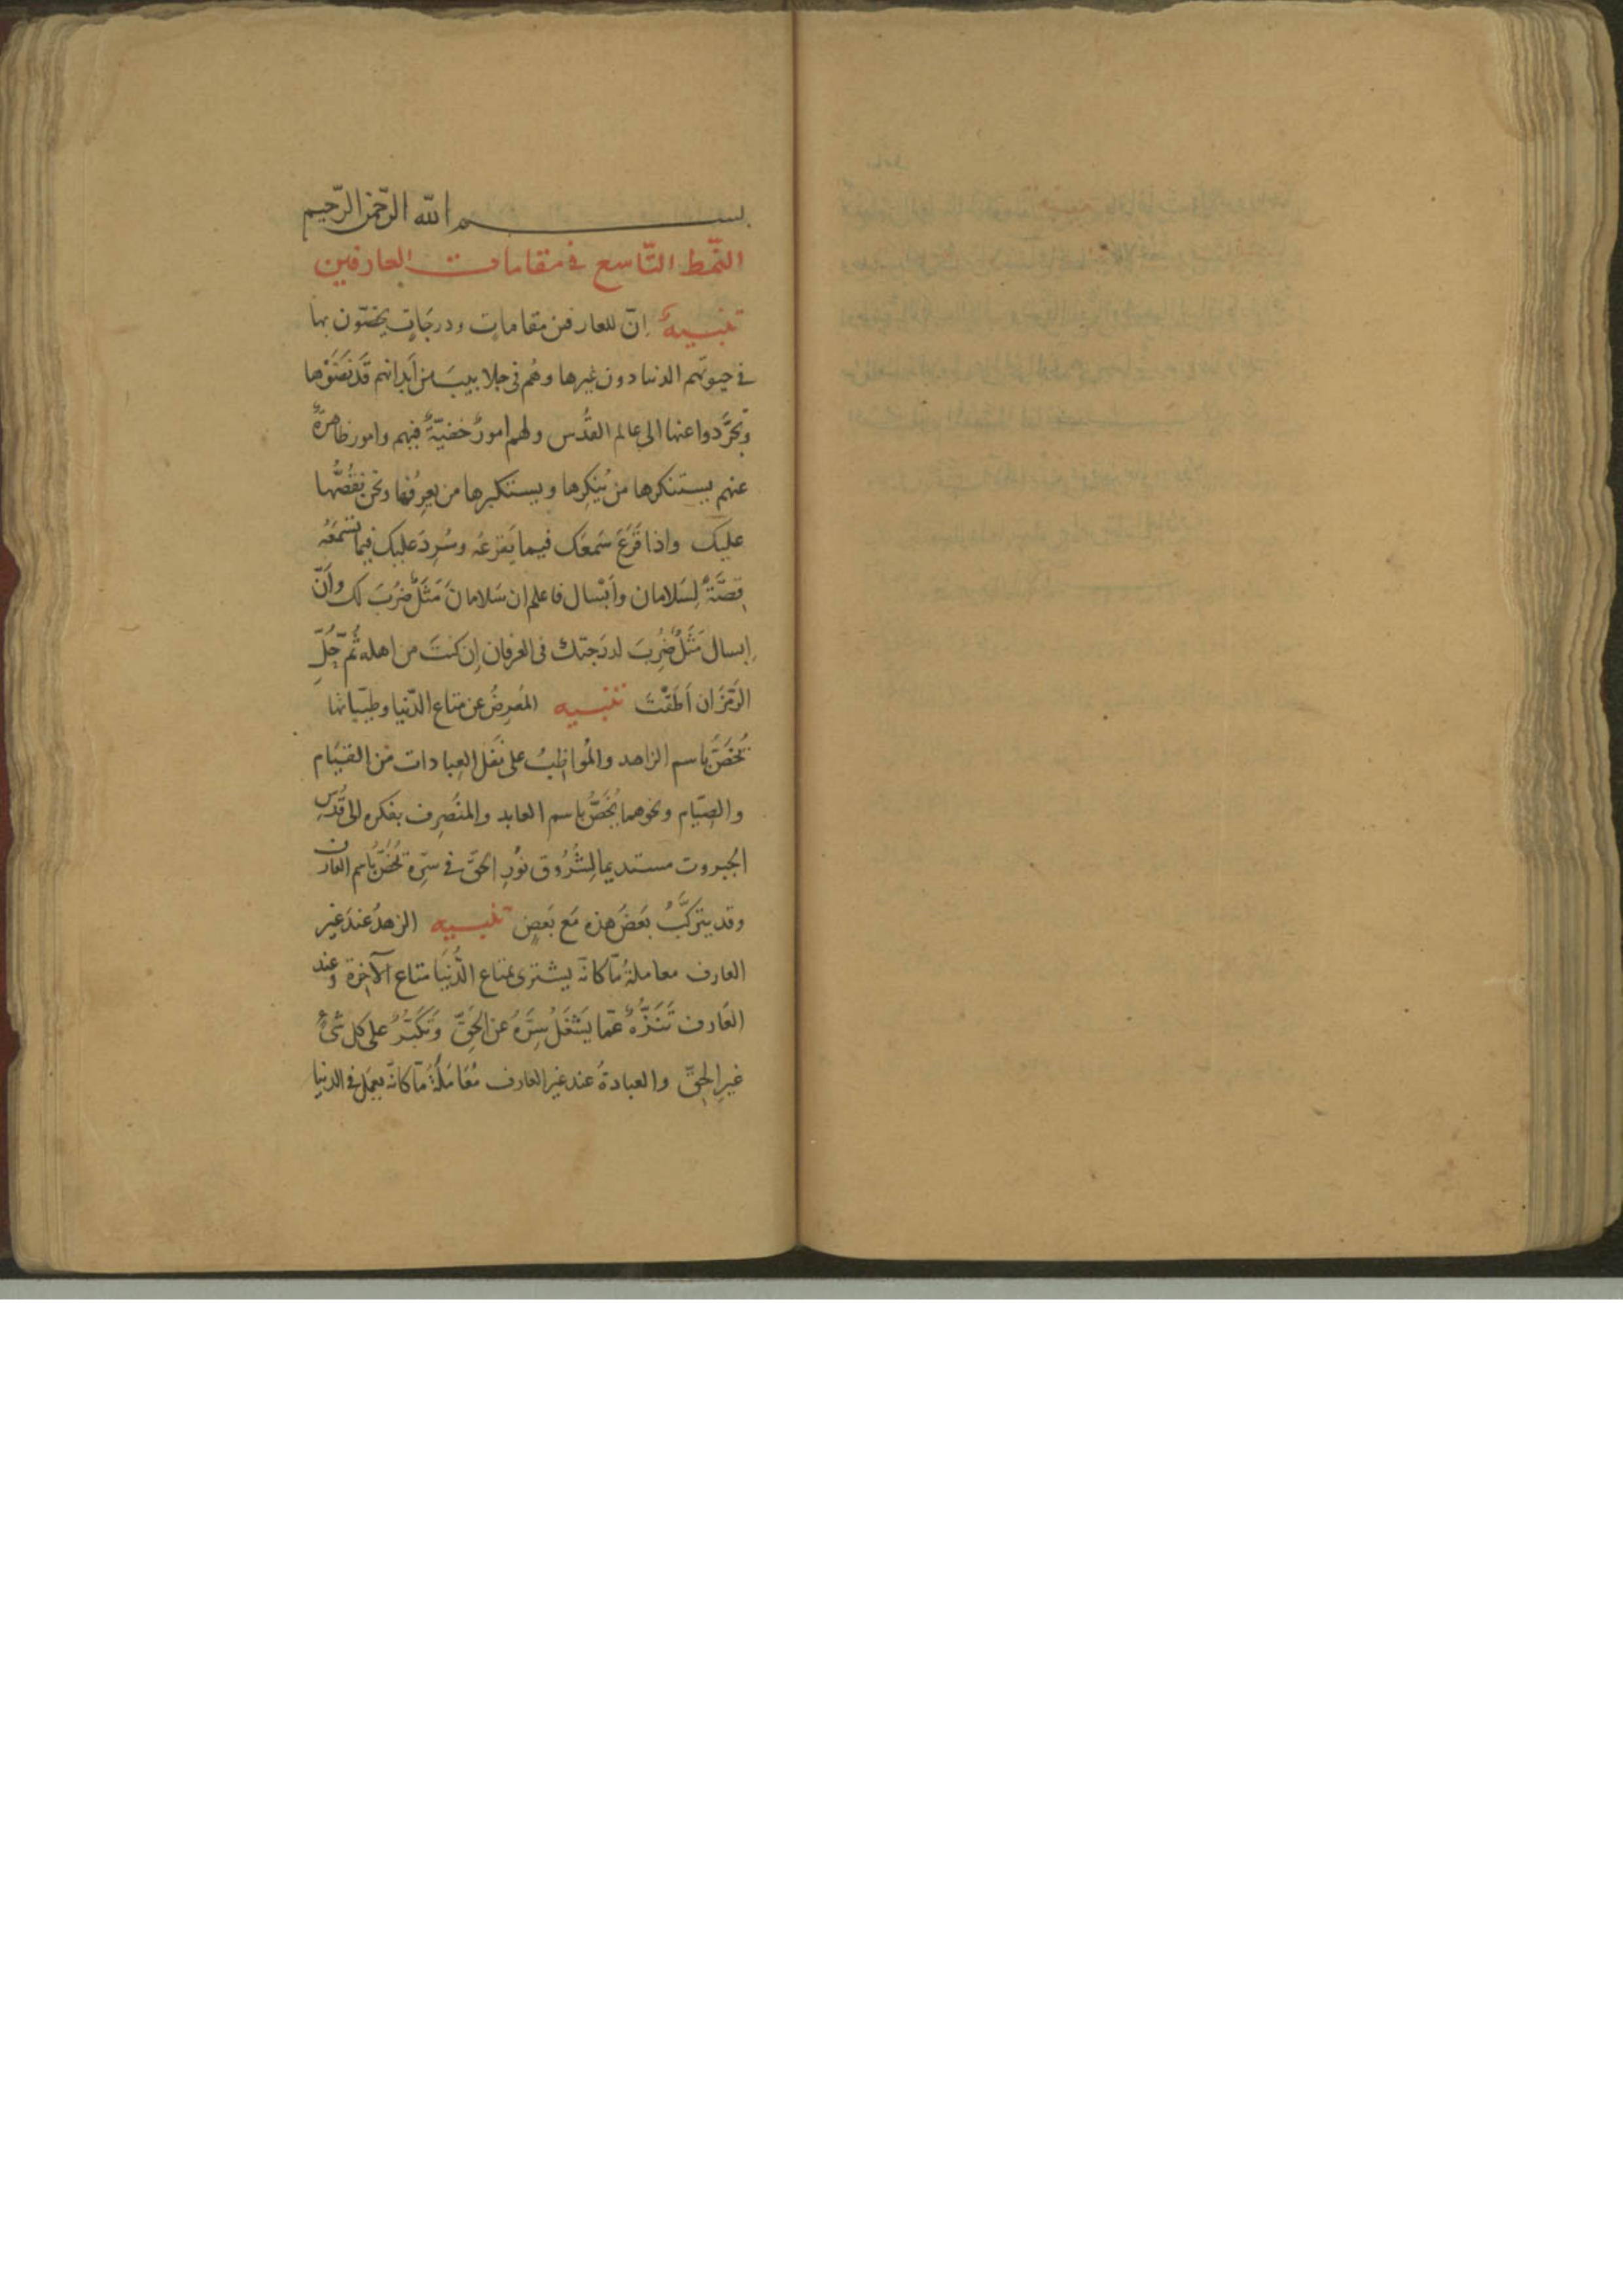 بسم الله الرّحمن الرّحيم
النّمط التّاسع في مقامات العارفين
تنبيهٌ إنّ للعارفين مقاماتٍ ودرجَاتٍ يخصّون بها
في حيوتهم الدنيا دون غيرها وهُم في جلابيبَ من أَبدانهم قَد نَضَوْها
وتجَرَّدوا عنها الى عالم القُدْس ولهم امورٌ خفيّةٌ فيهم وامور ظاهرةٌ
عنهم يستنكرها مَن يُنكِرها ويستكبرها من يعرِفُها ونحن نقُصُّها
عليكَ واذا قَرَعَ سَمعَك فيما يَقرعُه وسُرِدَ عليك فيما تسْمَعُه
قِصّةٌ لِسَلامان وأَبْسال فاعلم ان سَلامانَ مَثَلٌ ضُرِبَ لك وأَنّ
إِبسال مَثَلٌ ضُرِبَ لدرَجتك فى العرفان إِن كنتَ من اهله ثُمّ حُلَّ
الرّمزَ ان أَطَقْتَ تنبيه المُعرِضُ عن متاع الدّنيا وطيّباتها
يُخَصُّ باسم الزاهد والمُواظِبُ على نَفْل العِبادات مْن القيَام
والصِيّام ونحوهما يُخَصُّ باسم العابد والمنصَرِف بفكره الى قُدْسِ
الجبروت مستديما لِشُرُوق نُورِ الحقّ في سِرّه يُخَصُّ باسم العارف
وقد يتركَّبُ بَعضُ هذه مَع بَعضٍ تنبيه الزهدُ عندَ غير
العارف معاملةٌ مّا كانّه يشترى بمتاع الدُّنيَا متاع الآخِرة وعند
العَارف تَنَزُّهٌ عمّا يَشغَلُ سِرَّهُ عن الحَقِّ وَتَكَبُّرٌ على كل شىءٍ
غيرِ الحقّ والعبادةُ عند غير العارف مُعَامَلَةٌ مّا كانّه يعمَل في الدنيا